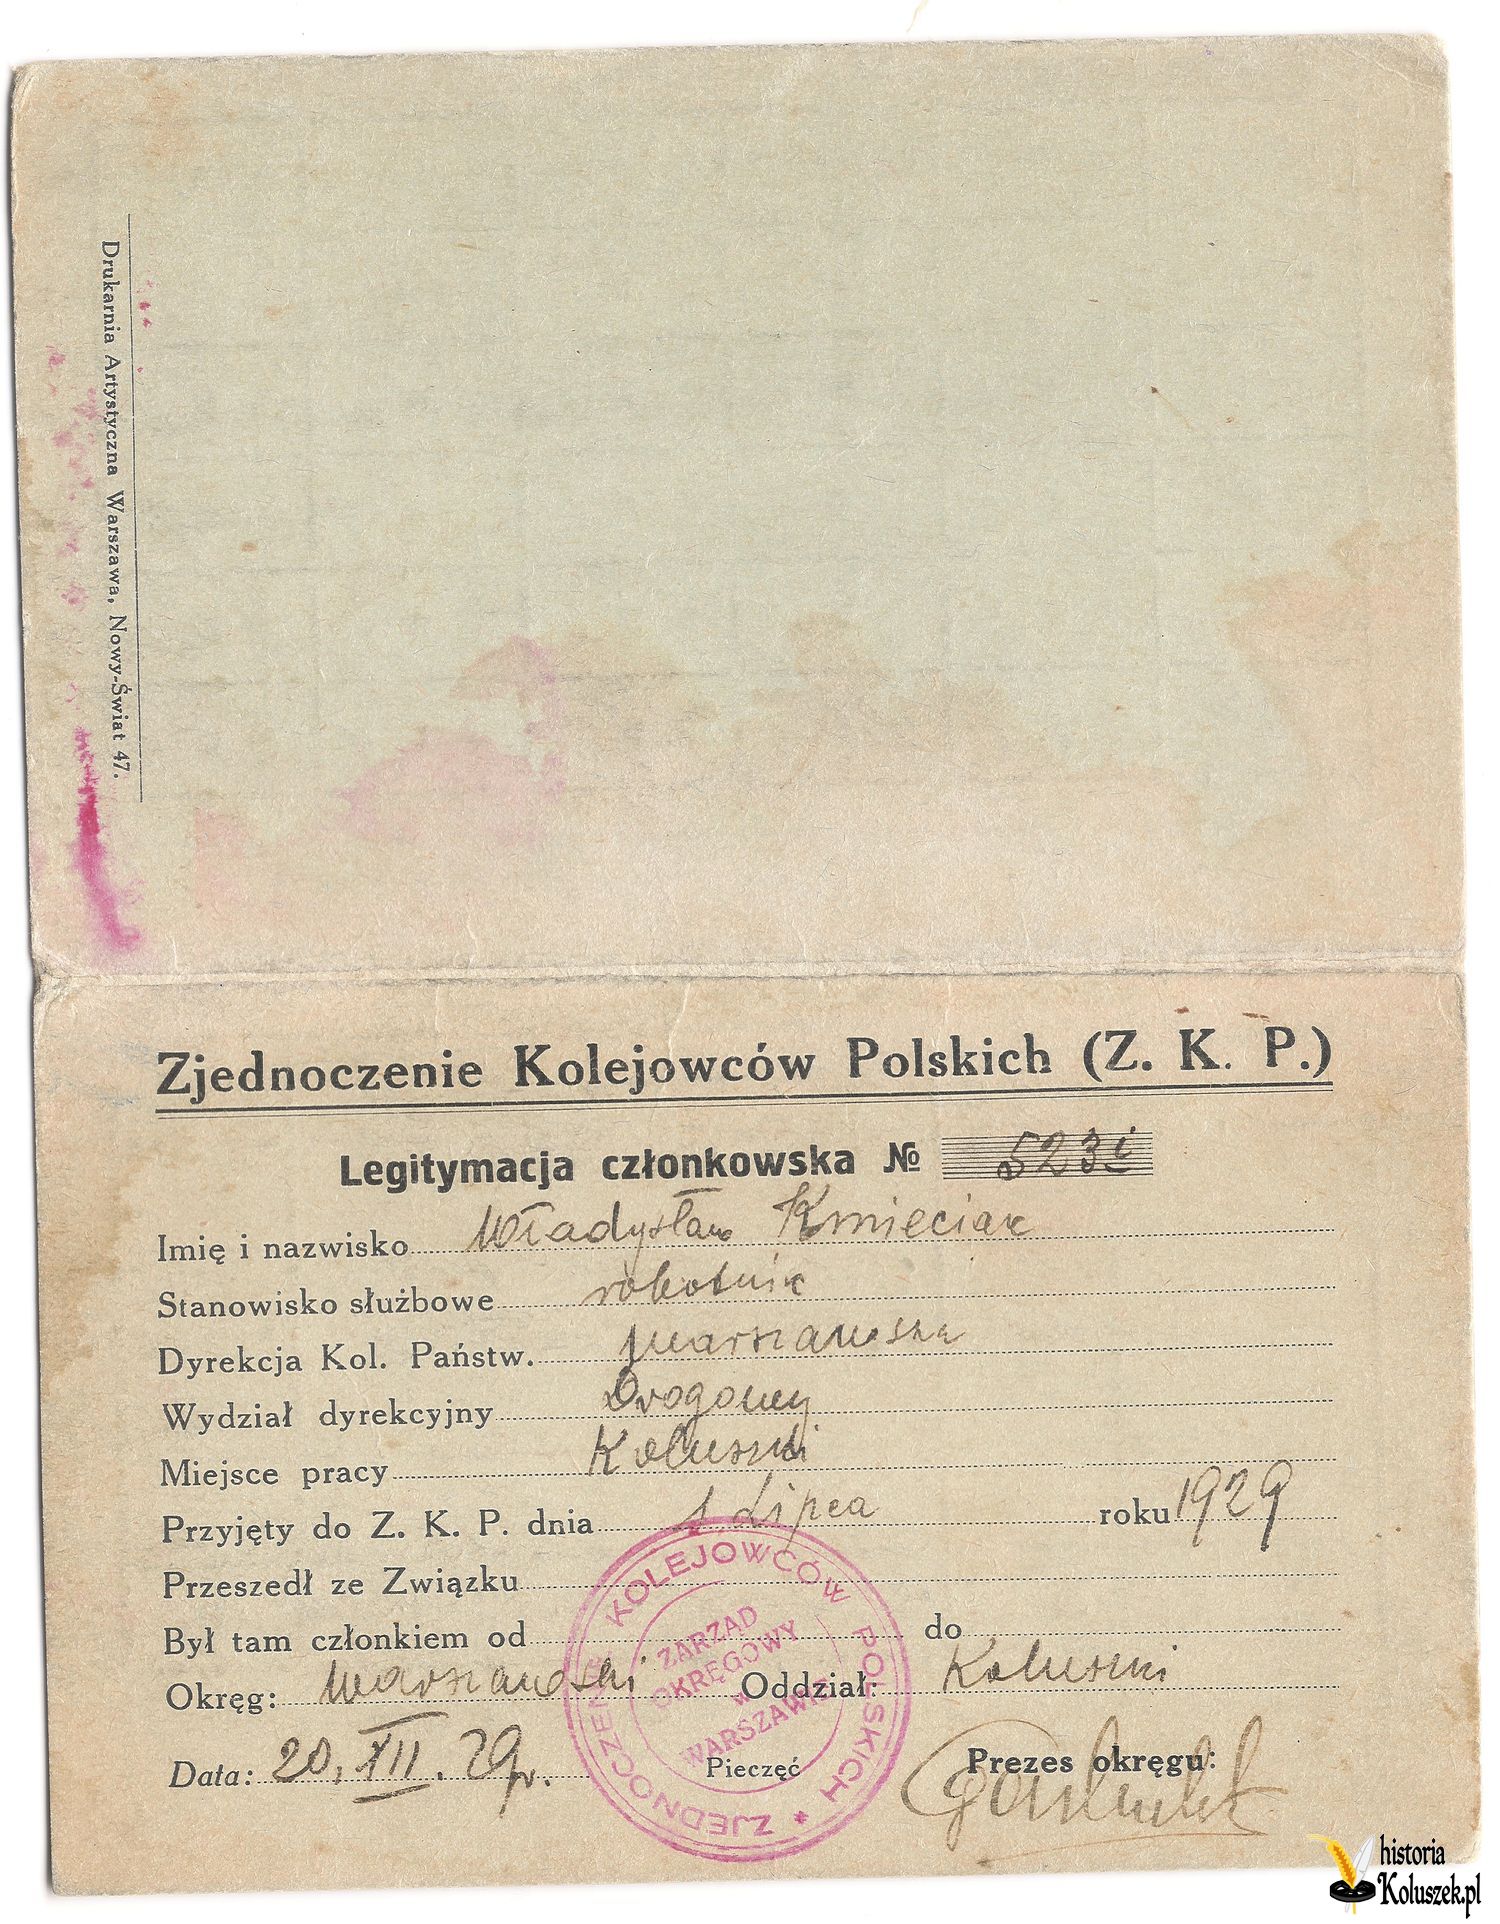 Drukarnia Artystyczna Warszawa, Nowy-Świat 47.
Zjednoczenie Kolejowców Polskich (Z. K. P.)
Legitymacja członkowska № 523
Imię i nazwisko Władysław Kmieciak
Stanowisko służbowe robotnik
Dyrekcja Kol. Państw. Warszawska
Wydział dyrekcyjny Drogowy
Miejsce pracy Koluszki
Przyjęty do Z. K. P. dnia 1 Lipca roku 1929
Przeszedł ze Związku
Był tam członkiem od do
Okręg: Warszawski Oddział: Koluszki
Data: 20. XII. 29 r. Pieczęć Prezes okręgu:
ZJEDNOCZENIE KOLEJOWCÓW POLSKICH *
ZARZĄD
OKRĘGOWY
w
WARSZAWIE
historia
Koluszek.pl